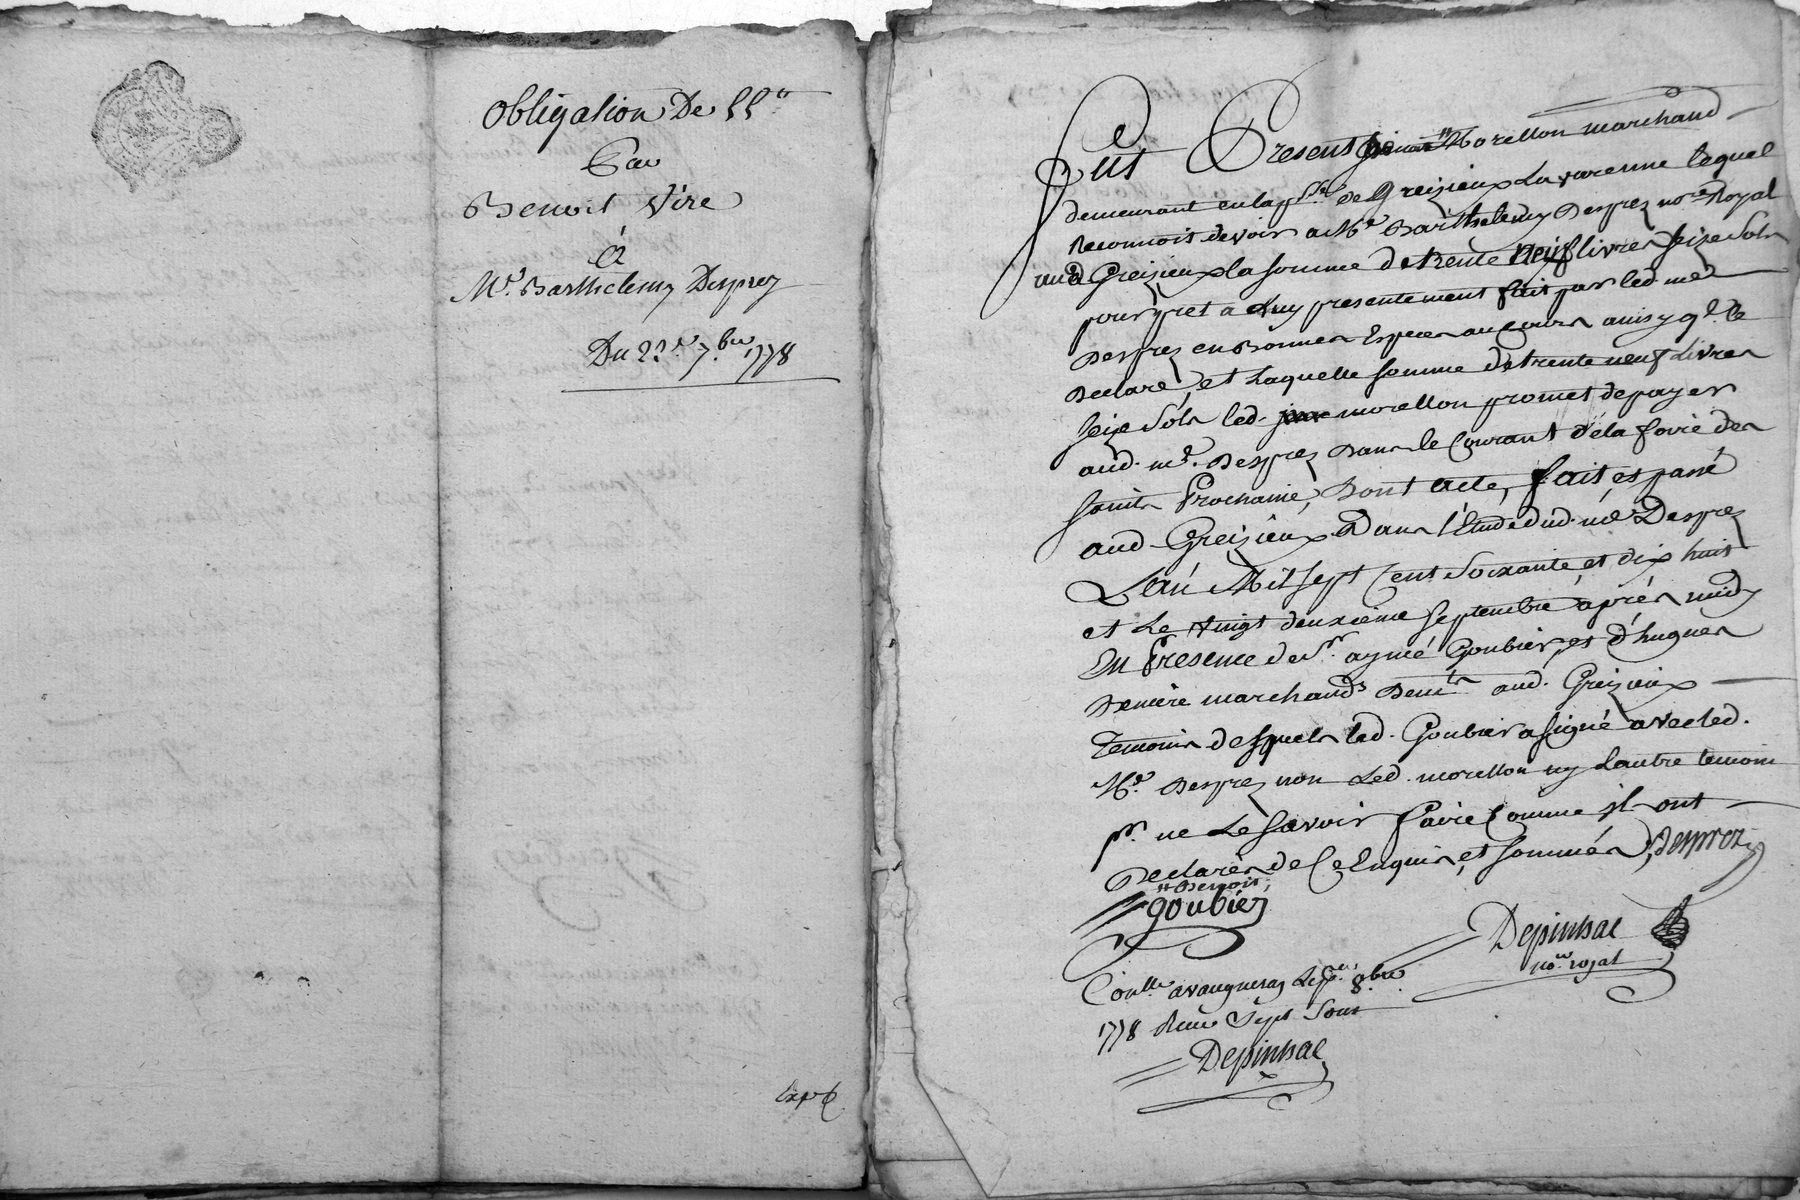 Obligation De 55ᵗᵗ
Par
Benoit Vire
à
Mᵉ. Barthelemy Desprez
Du 22ᵉ. 7.ᵇʳᵉ 1778
expé
Fut Present Benoit Morellon marchand
demeurant en la pˢˢᵉ de Greizieux La varenne lequel
Reconnoit devoir a Mᵉ Barthelemy Desprez noʳᵉ Royal
aud Greizieux la somme de trente neuf livres seize Sols
pour pret a Luy presentement fait par led. mᵉ
Desprez en Bonnes Especes au Cours ainsy q'. Le
Declare, et Laquelle somme de trente neuf Livres
seize Sols led. morellon promet de payer
aud. mᵉ. Desprez Dans le Courant de la foire des
saints Prochaine, Dont acte, fait et passé
aud. Greizieux Dans l'Etude dud. mᵉ Desprez
L'an Mil sept Cent Soixante et dix huit
et Le vingt deuxieme septembre après midy
En Presence de Sʳ. aymé Goubier, et d'hugues
marchands Demᵗˢ aud. Greizieux
Temoins desquels led. Goubier a signé avec led.
Mᵉ. Desprez non Led. morellon ny Lautre temoin
pʳ. ne Le Scavoir faire Comme il ont
Declarés de Ce Enquis, et sommés, Desprez
" Benoit
goubier
Depinhac
noʳᵉ royal
Conˡˡᵉ a vaugneray Le 8ᵇʳᵉ
1778 Reçu Sept Sous
Depinhac